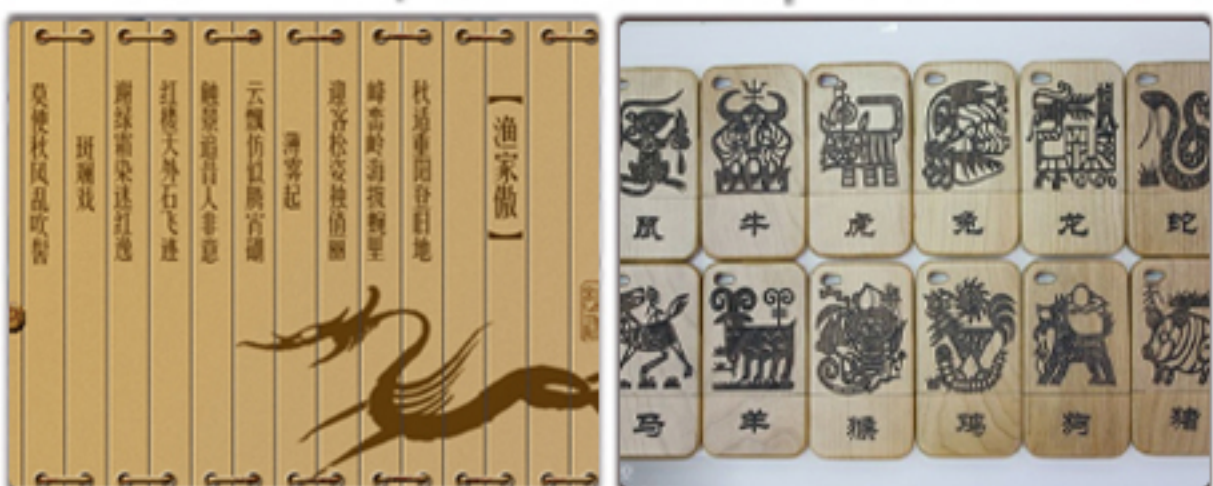 【渔家傲】
秋适重阳登旧地
峰峦岭海拔巍里
迎客松姿独俏丽
薄雾起
云飘仿似腾宵翅
触景追昔人非意
红楼天外石飞迹
谢绿霜染迷红逸
斑斓戏
莫使秋风乱吹髻
鼠 牛 虎 兔 龙 蛇
马 羊 猴 鸡 狗 猪